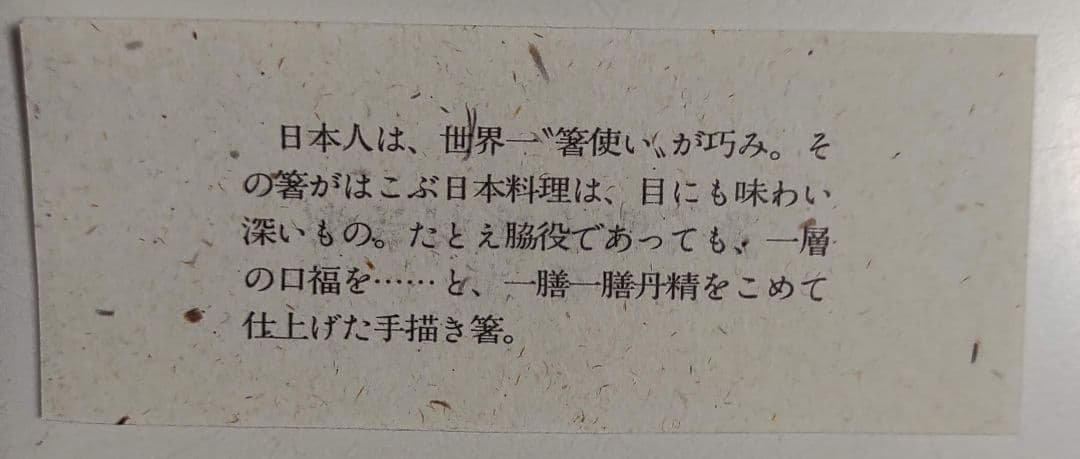 日本人は、世界一〝箸使い〟が巧み。そ
の箸がはこぶ日本料理は、目にも味わい
深いもの。たとえ脇役であっても、一層
の口福を……と、一膳一膳丹精をこめて
仕上げた手描き箸。